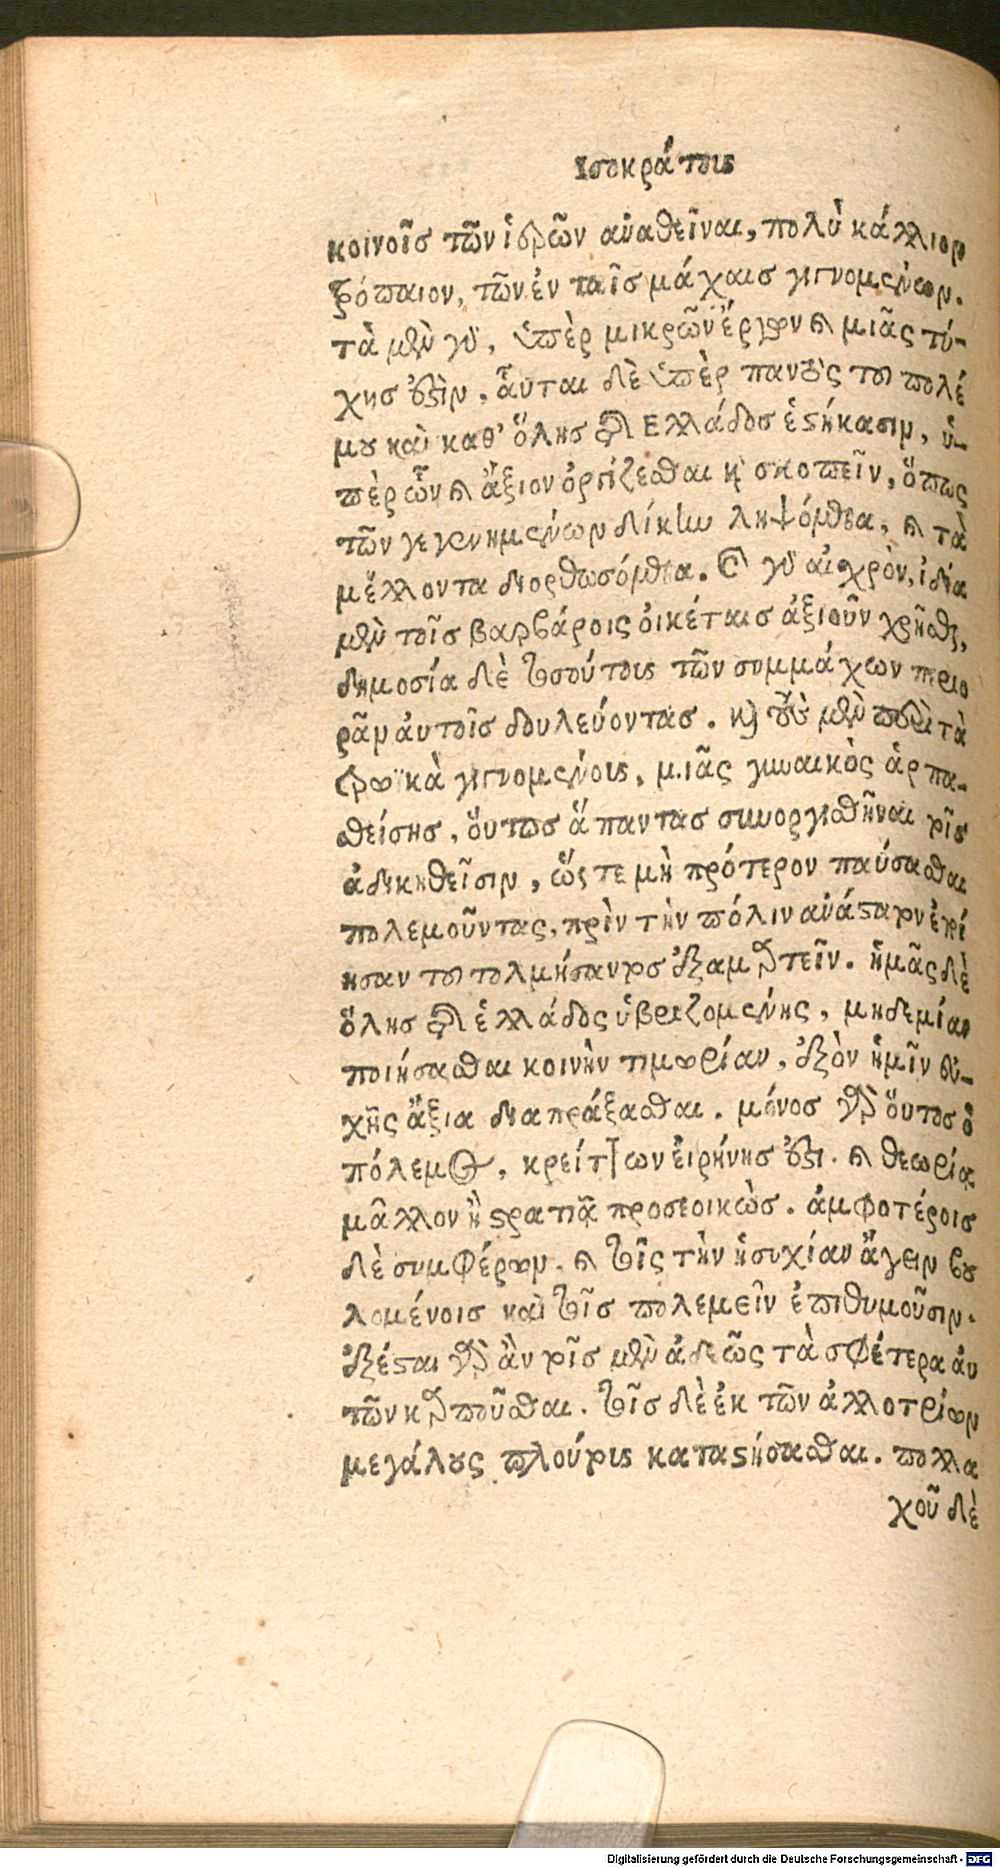 Ισοκράτους
κοινοῖς τῶν ἱερῶν ἀναθεῖναι, πολὺ κάλλιον
τρόπαιον, τῶν ἐν ταῖς μάχαις γιγνομένων.
τὰ μὲν γὰρ, ὑπὲρ μικρῶν ἔργων καὶ μιᾶς τύ-
χης ἐστὶν, αὗται δὲ ὑπὲρ παντὸς τοῦ πολέ
μου καὶ καθ' ὅλης τῆς Ελλάδος ἑστήκασιν, ὑ-
πὲρ ὧν καὶ ἄξιον ὀργίζεσθαι καὶ σκοπεῖν, ὅπως
τῶν γεγενημένων δίκην ληψόμεθα, καὶ τὰ
μέλλοντα διορθωσόμεθα. καὶ γὰρ αἰσχρὸν, ἰδία
μὲν τοῖς βαρβάροις οἰκέταις ἀξιοῦν χρῆσθαι,
δημοσία δὲ τοσούτους τῶν συμμάχων περιο
ρᾶν ἀυτοῖς δουλεύοντας. καὶ τοὺς μὲν περὶ τὰ
τρωϊκὰ γιγνομένους, μιᾶς γυναικὸς ἁρπα-
σθείσης, οὕτως ἅπαντας συνοργισθῆναι τοῖς
ἀδικηθεῖσιν, ὥστε μὴ πρότερον παύσασθαι
πολεμοῦντας, πρὶν τὴν πόλιν ἀνάστατον ἐποί
ησαν τοῦ τολμήσαντος ἐξαμαρτεῖν. ἡμᾶς δὲ
ὅλης τῆς ἑλλάδος ὑβριζομένης, μηδεμίαν
ποιήσασθαι κοινὴν τιμωρίαν, ἐξὸν ἡμῖν εὐ-
χῆς ἄξια διαπράξασθαι. μόνος γὰρ οὕτος ὁ
πόλεμος, κρείττων εἰρήνης ἐστι. καὶ θεωρίᾳ
μᾶλλον ἢ στρατιᾷ προσεοικὼς. ἀμφοτέροις
δὲ συμφέρων. καὶ τοῖς τὴν ἡσυχίαν ἄγειν βου
λομένοις καὶ τοῖς πολεμεῖν ἐπιθυμοῦσιν.
ἐξέσται γὰρ ἂν τοῖς μὲν ἀδεῶς τὰ σφέτερα ἀυ
τῶν καρποῦσθαι. τοῖς δὲ ἐκ τῶν ἀλλοτρίων
μεγάλους πλούτους καταστήσασθαι. πολλα
χοῦ δὲ
Digitalisierung gefördert durch die Deutsche Forschungsgemeinschaft - DFG